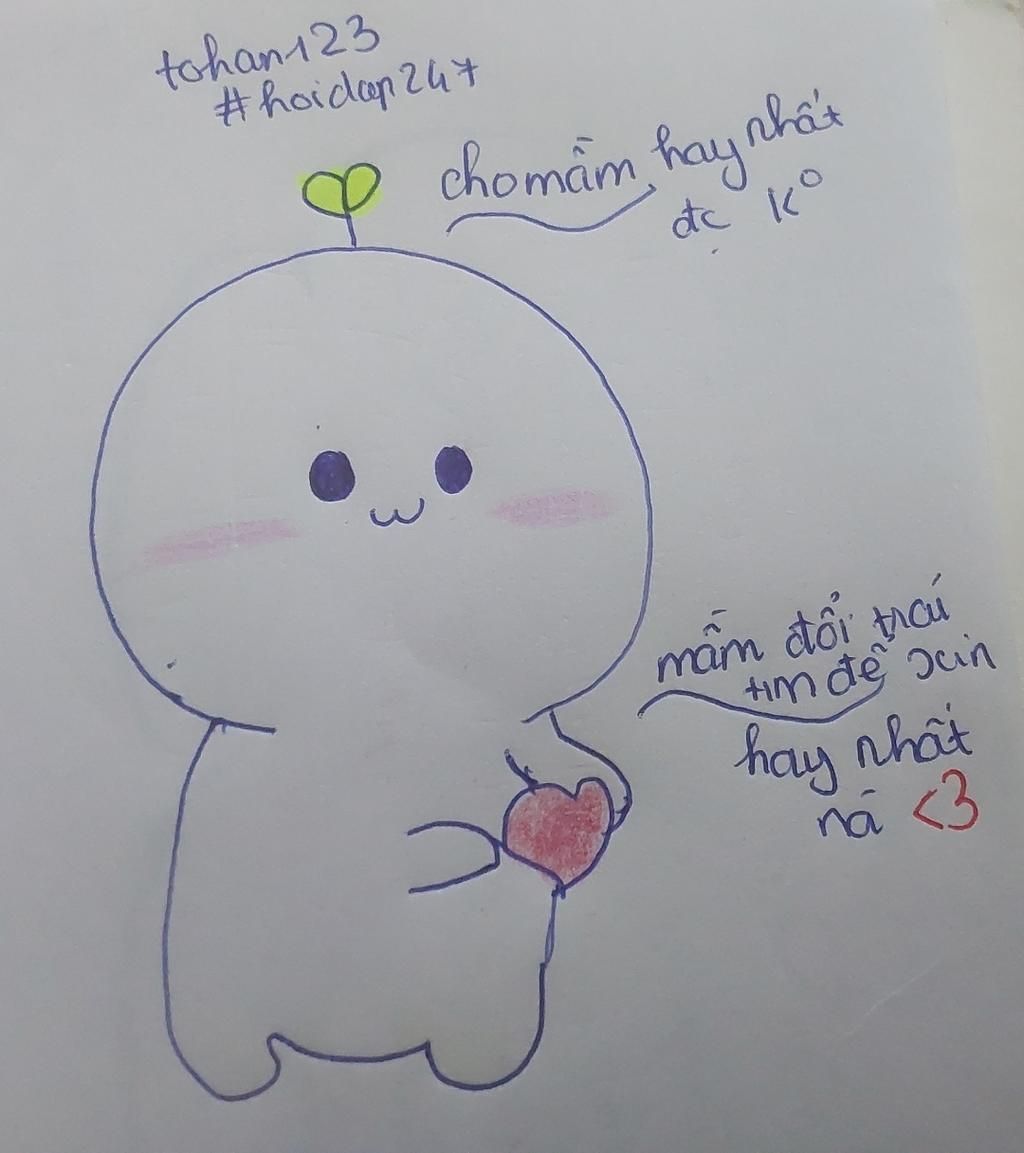 tohan123
#hoidap247
cho mầm hay nhất
đc K°
mầm đổi trái
tim để xin
hay nhất
ná <3